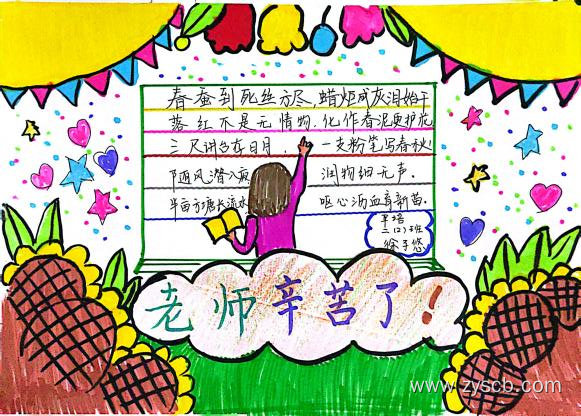 春蚕到死丝方尽,蜡炬成灰泪始干
落红不是无情物,化作春泥更护花
三尺讲台存日月,一支粉笔写春秋
随风潜入夜 润物细无声.
半亩方塘长流水 呕心沥血育新苗.
二(2)班
老师辛苦了!
www.zyscb.com